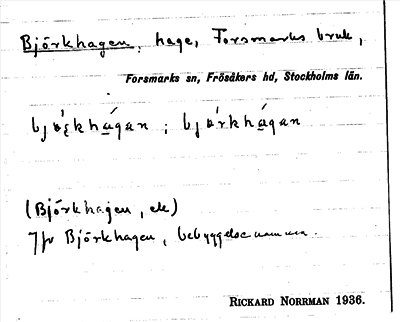 Björkhagen, hage, Forsmarks bruk,
Forsmarks sn, Frösåkers hd, Stockholms län.
(Björkhagen, ek)
Jfr Björkhagen, bebyggelsenamnen.
RICKARD NORRMAN 1936.